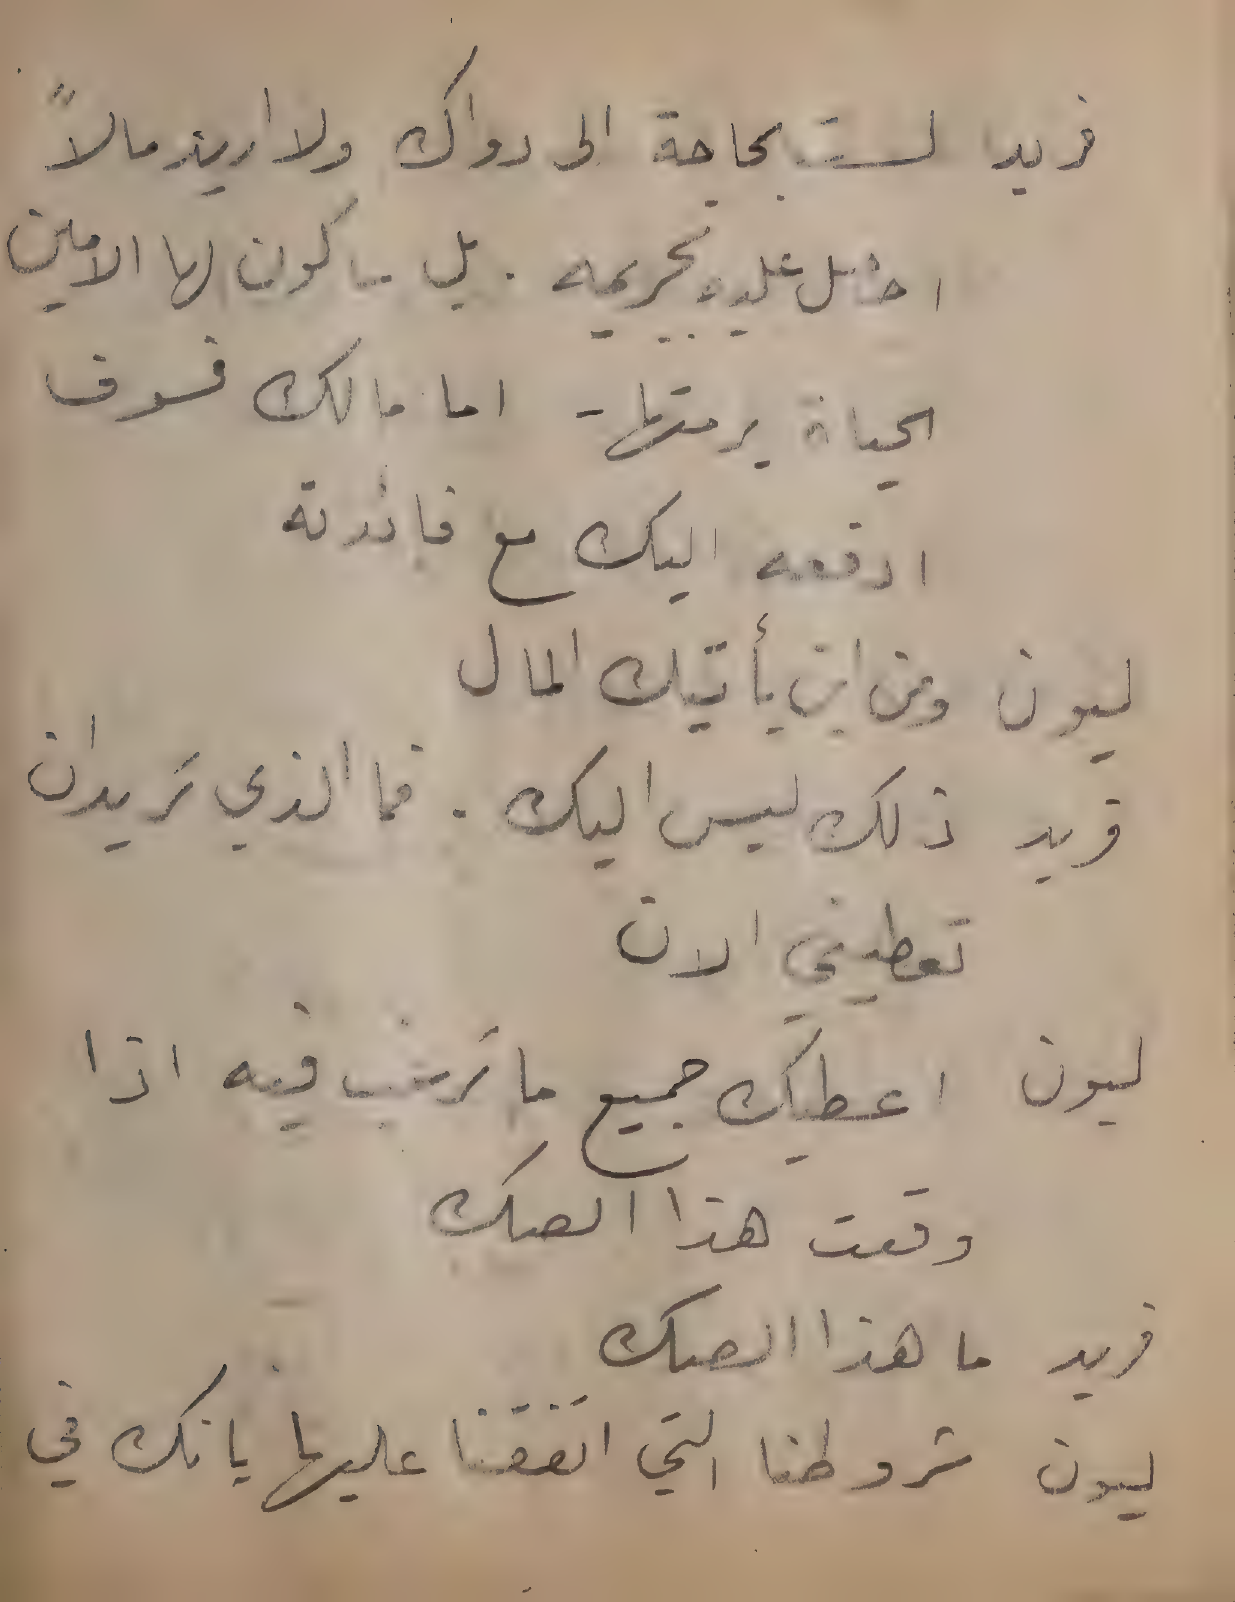 فريد لست بحاجة الى دواك ولا اريد مالاً
احصل عليه بجريمه . بل ساكون لها الامين
الحياة برمتها - اما مالك فسوف
ادفعه اليك مع فائدته
ليون ومن اين يأتيك المال
فريد ذلك ليس اليك . فما الذي تريد ان
تعطيني الان
ليون اعطيك جميع ما ترغب فيه اذا
وقعت هذا الصك
فريد ما هذا الصك
ليون شروطنا التي اتفقنا عليها بانك في